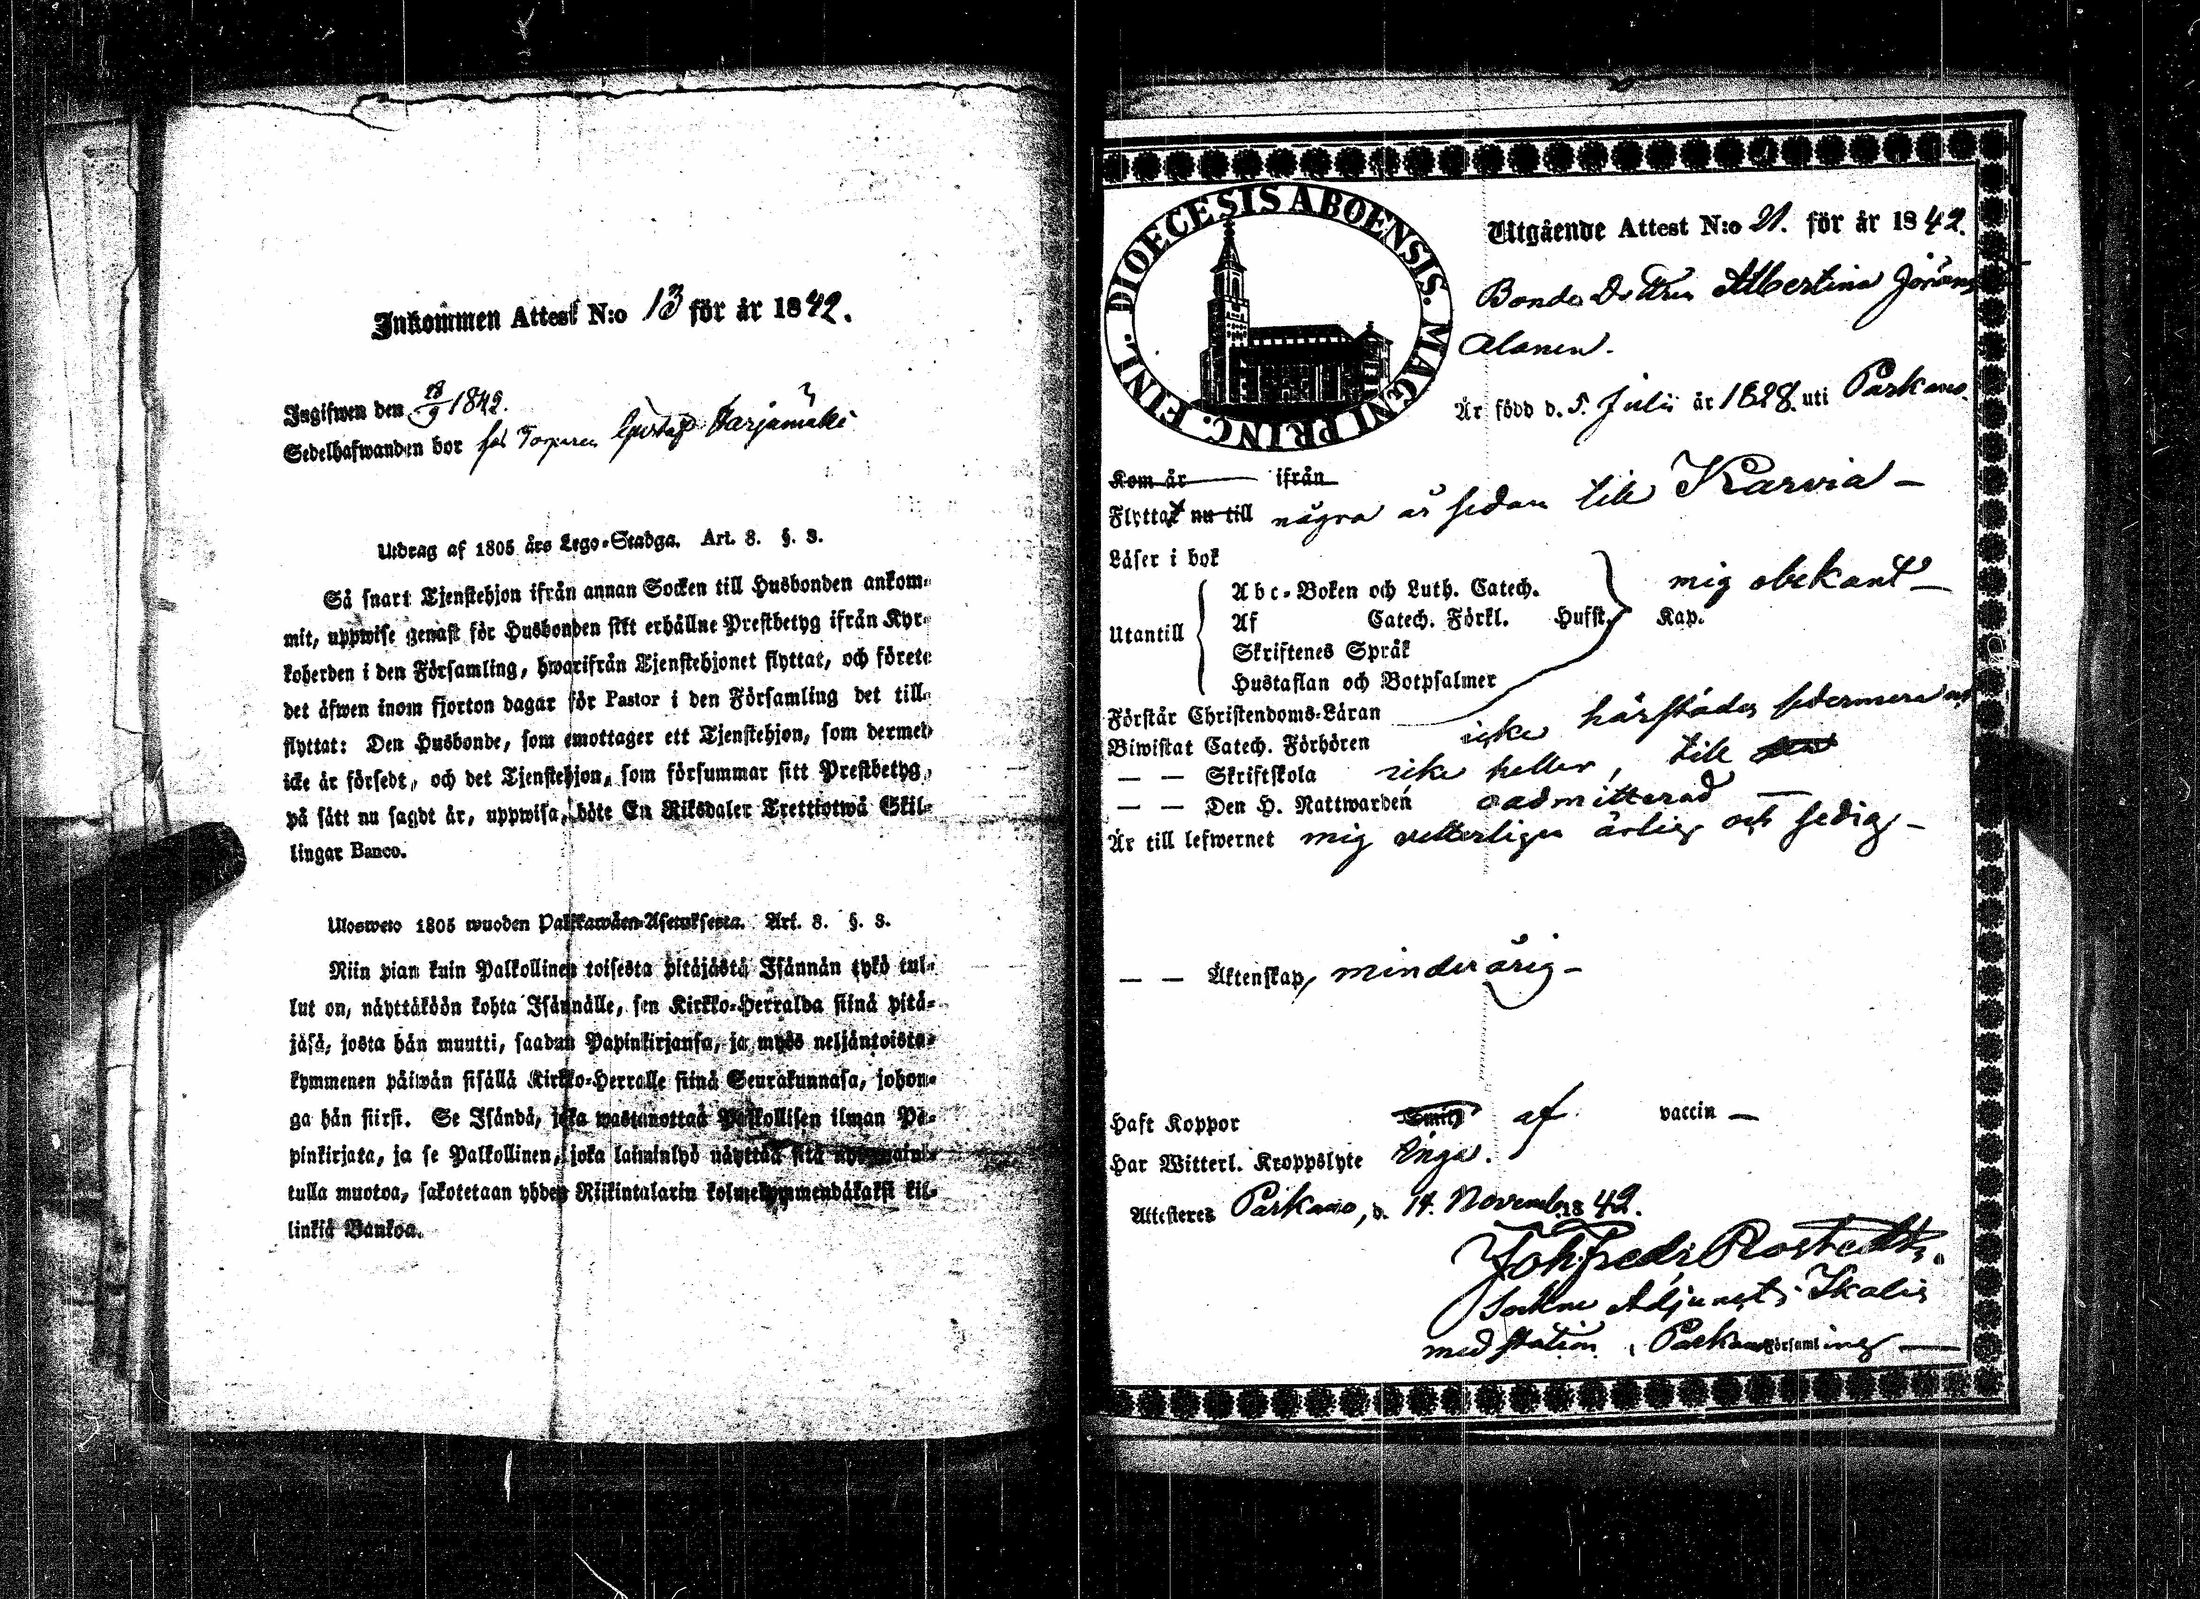 Inkommen Attest N:o 13 för år 1842.
Ingifwen den 18/9 1842.
Sedelhafwanden bor hos Torparen Gustaf Harjamäki
Utdrag af 1805 års Lego-Stadga. Art. 8. §. 3.
Så snart Tjenstehjon ifrån annan Socken till Husbonden ankom-
mit, uppwise genast för Husbonden sitt erhållne Prestbetyg ifrån Kyr-
koherden i den Församling, hwarifrån Tjenstehjonet flyttat, och förete
det äfwen inom fjorton dagar för Pastor i den Församling det till-
flyttat: Den Husbonde, som emottager ett Tjenstehjon, som dermed
icke är försedt, och det Tjenstehjon, som försummar sitt Prestbetyg,
på sätt nu sagdt är, uppwisa, böte En Riksdaler Trettiotwå Skil-
lingar Banco.
Ulosweto 1805 wuoden Palkkawäen-Asetuksesta. Art. 8. §. 3.
Niin pian kuin Palkollinen toisesta pitäjästä Isännän tykö tul-
lut on, näyttäköön kohta Isännälle, sen Kirkko-Herralda siinä pitä-
jäsä, josta hän muutti, saadun Papinkirjansa, ja myös neljäntoista-
kymmenen päiwän sisällä Kirkko-Herralle siinä Seurakunnasa, johon-
ga hän siirsi. Se Isändä, joka wastanottaa Palkollisen ilman Pa-
pinkirjata, ja se Palkollinen, joka laiminlyö näyttää sitä
tulla muotoa, sakotetaan yhden Riikintalarin kolmekymmendäkaksi kil-
linkiä Bankoa.
DIOECESIS ABOENSIS. MAGNI PRINC. FINL.
Utgående Attest N:o 21. för år 1842.
Bonde Dottren Albertina Jörans
Alanen.
Är född d. 5. Julii år 1828. uti Parkano.
Kom år ifrån
Flyttat nu till några år sedan till Karvia –
Läser i bok
Utantill
Abc-Boken och Luth. Catech.
Af Catech. Förkl. Husst. Kap.
Skriftenes Språk
Hustaflan och Botpsalmer
mig obekant –
Förstår Christendoms-Läran
Biwistat Catech. Förhören icke härstädes sedermera
— — Skriftskola icke heller, till
— — Den H. Nattwarden oadmitterad —
Är till lefwernet mig vetterligen ärlig och sedig –
— — Äktenskap, minderårig –
Haft Koppor af vaccin —
Har Witterl. Kroppslyte Inga.
Attesteras Parkano, d. 14. November 1842.
Joh. Fredr. Rostedt,
Sockne Adjunct i Ikalis
med station i Parkano Församling —